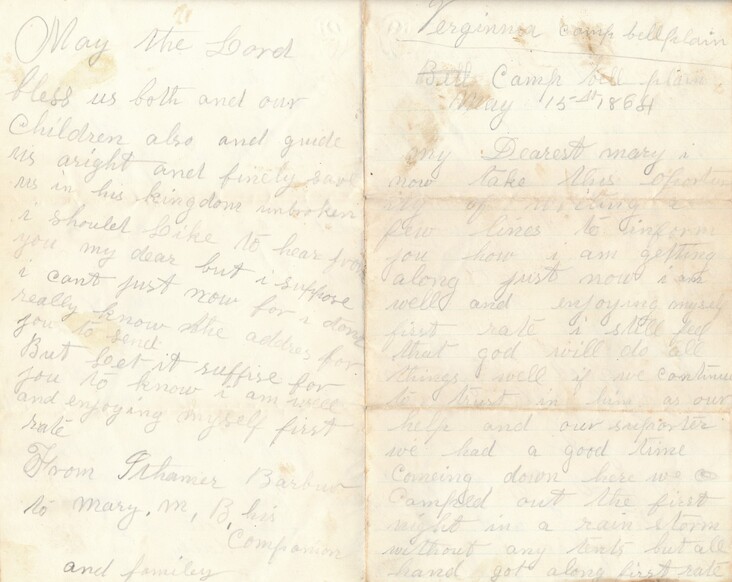 May the Lord
bless us both and our
Children also and guide
us aright and finely save
us in his kingdom unbroken
i should Like to hear from
you my dear but i suppose
i cant just now for i dont
really know the addres for
you to send
But Let it suffise for
you to know i am well
and enjoying myself first
rate
From Ithamer Barbur
to Mary, M, B, his
Companion
and familey
Verginnia camp bellplain
Camp bell plain
May 15th 1864
my Dearest mary i
now take this oportun
ity of writing a
few lines to inform
you how i am getting
along just now i am
well and enjoying myself
first rate i still
that god will do all
things well if we continue
to trust in him as our
help and our suporter
we had a good time
comeing down here we
Camped out the first
night in a rain storm
without any tents but all
hand got along first rate